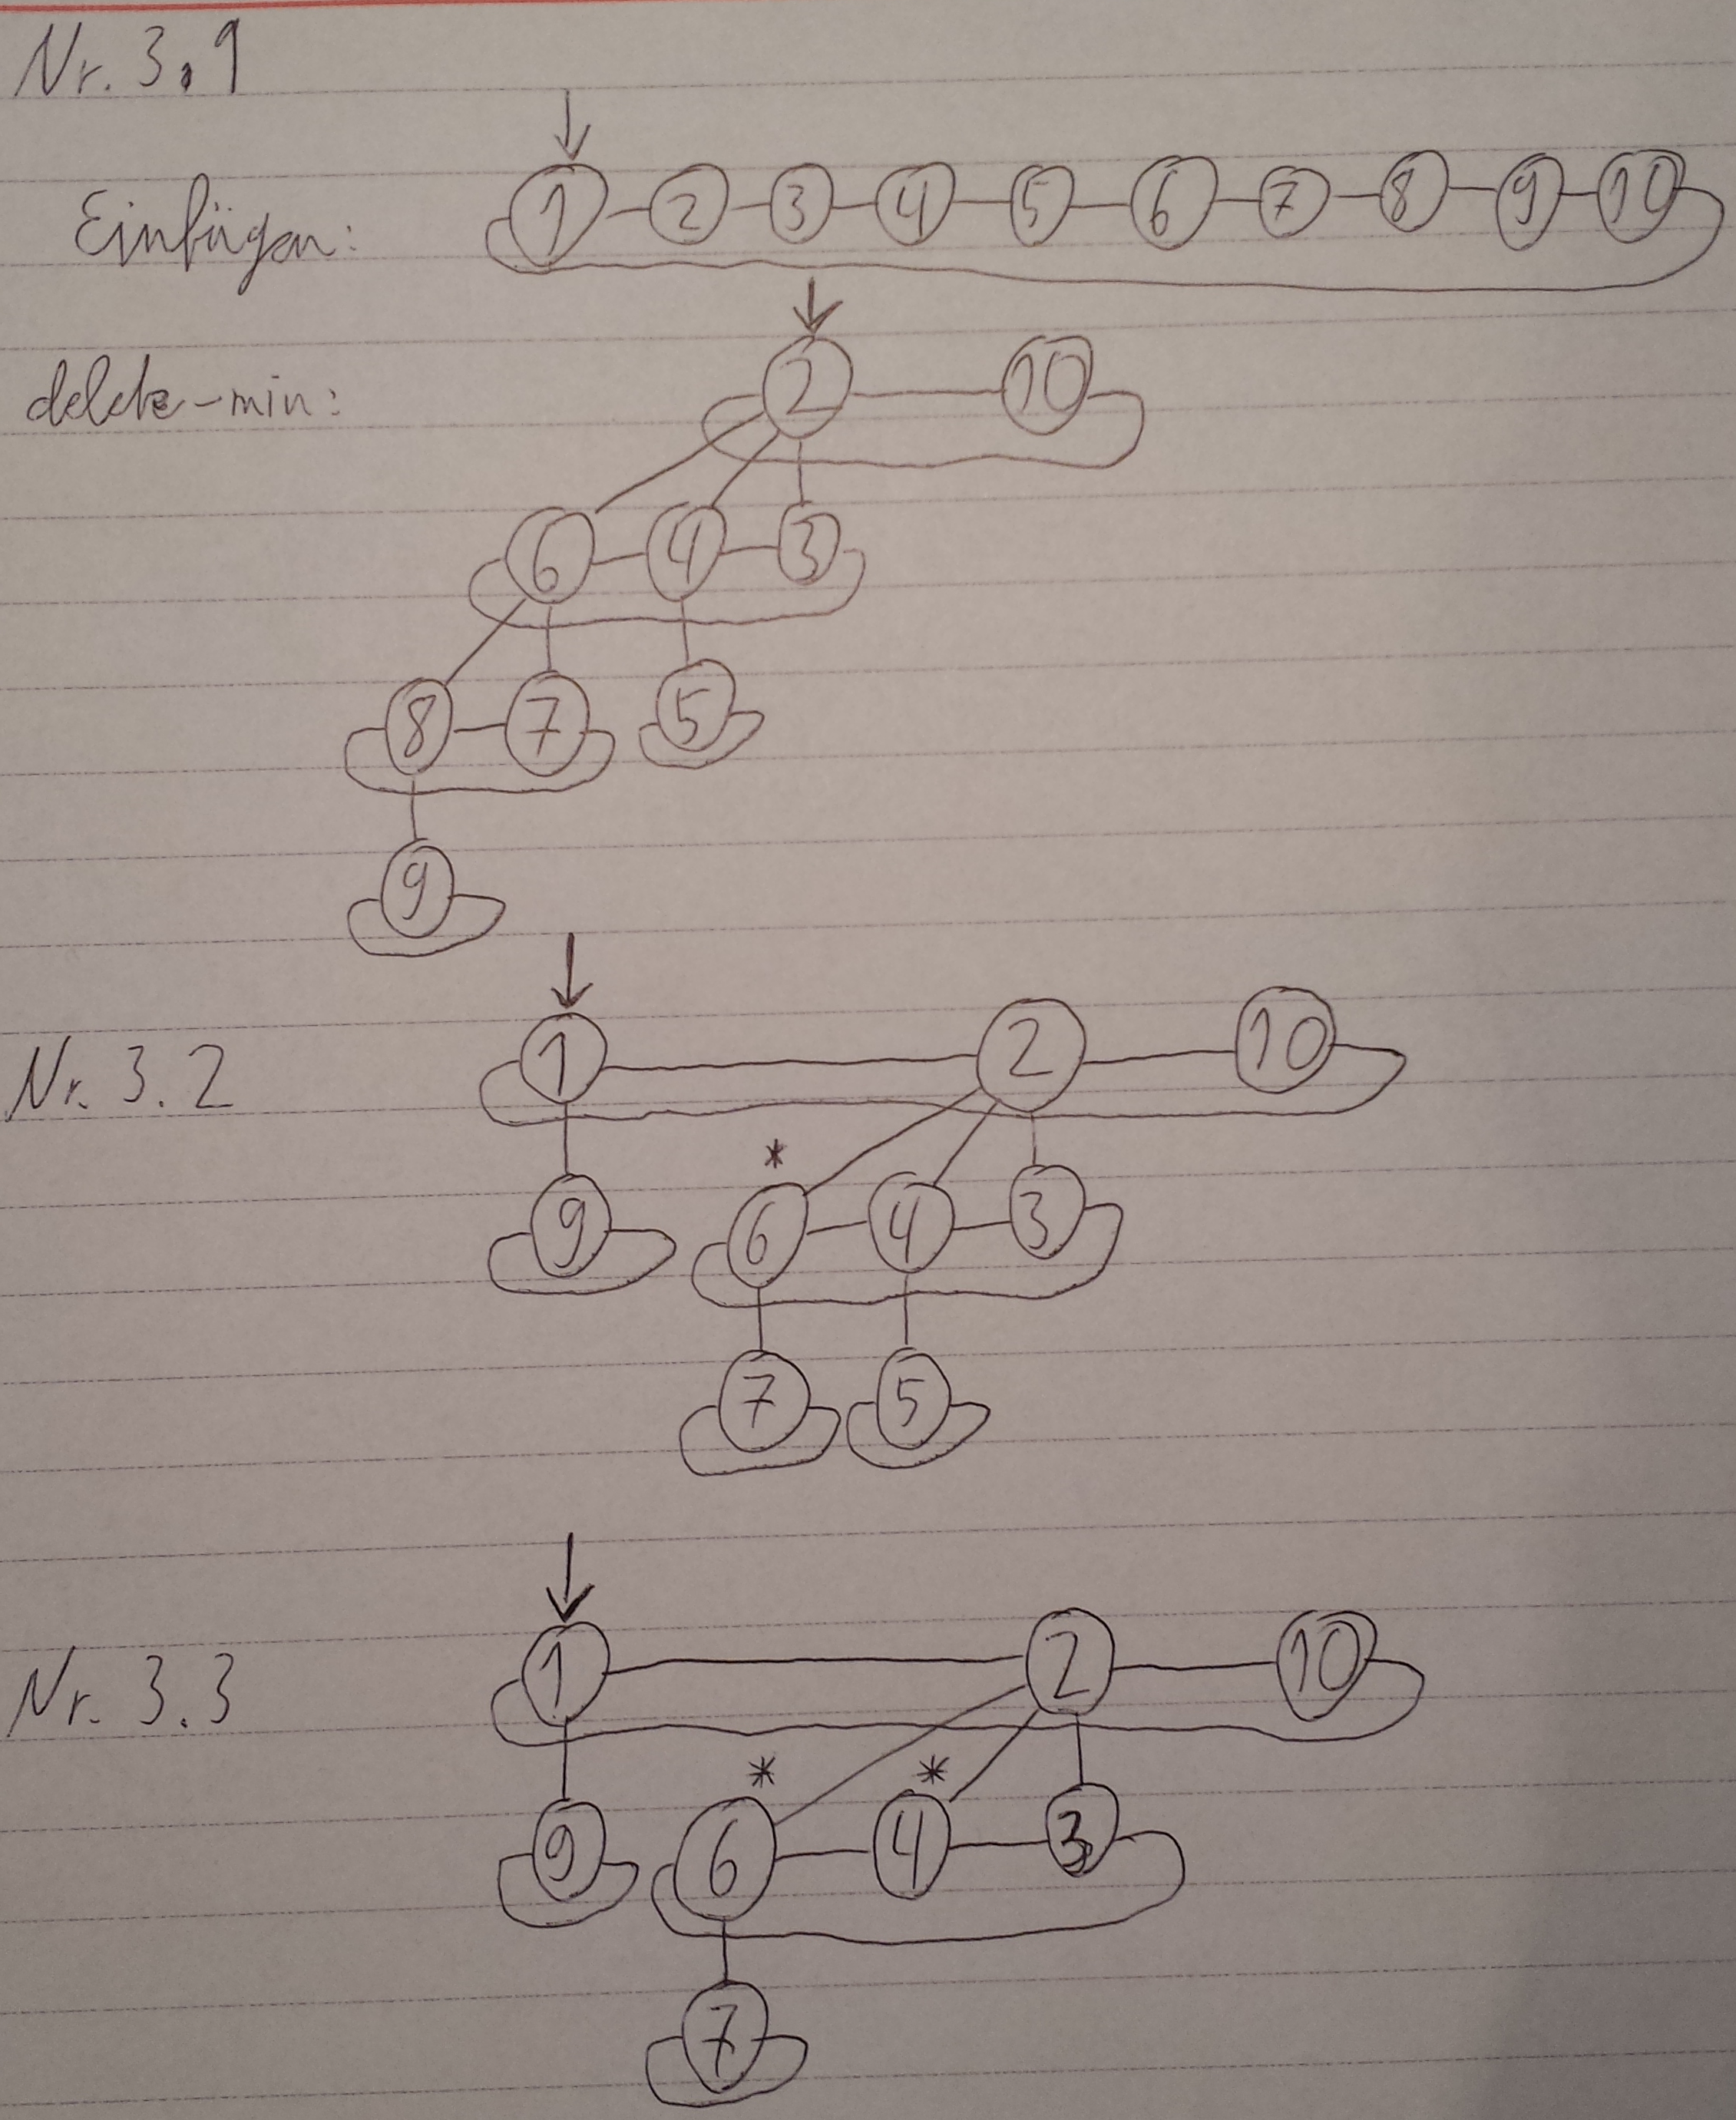 Nr. 3.1
Einfügen: 1 2 3 4 5 6 7 8 9 10
delete-min: 2 10
6 4 3
8 7 5
9
Nr. 3.2 1 2 10
*
9 6 4 3
7 5
Nr. 3.3 1 2 10
* *
9 6 4 3
7